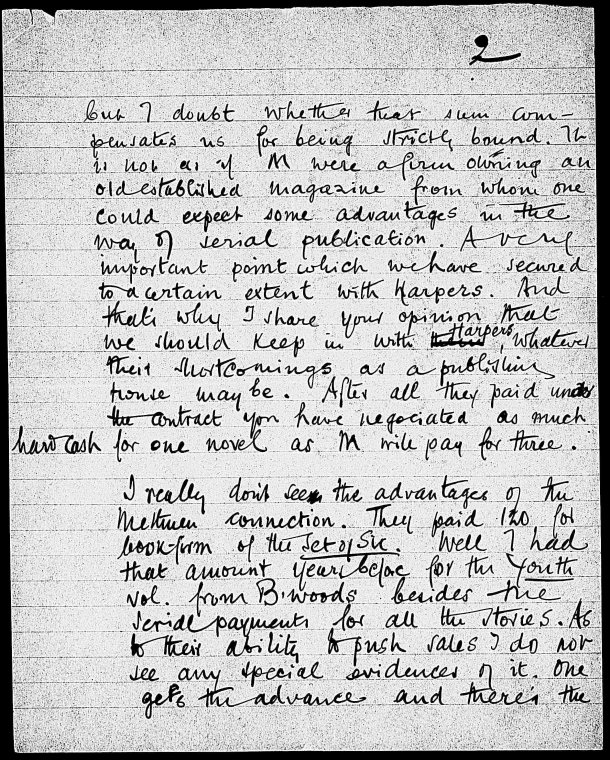 2
but I doubt whether that sum com-
pensates us for being strictly bound. It
is not as if M were a firm owning an
old established magazine from whom one
could expect some advantages in the
way of serial publication. A very
important point which we have secured
to a certain extent with Harpers. And
that's why I share your opinion that
we should keep in with Harpers, whatever
their shortcomings as a publishing
house may be. After all they paid under
the contract you have negociated as much
hard cash for one novel as M. will pay for three.
I really don't see the advantages of the
Methuen connection. They paid 120 for
book-form of the Set of Six. Well I had
that amount years before for the Youth
vol. from B'woods besides the
serial payments for all the stories. As
to their ability to push sales I do not
see any special evidences of it. One
gets the advance and there's the